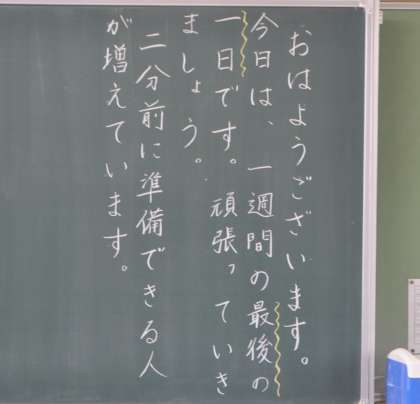 おはようございます。
今日は、一週間の最後の
一日です。頑張っていき
ましょう。
二分前に準備できる人
が増えています。